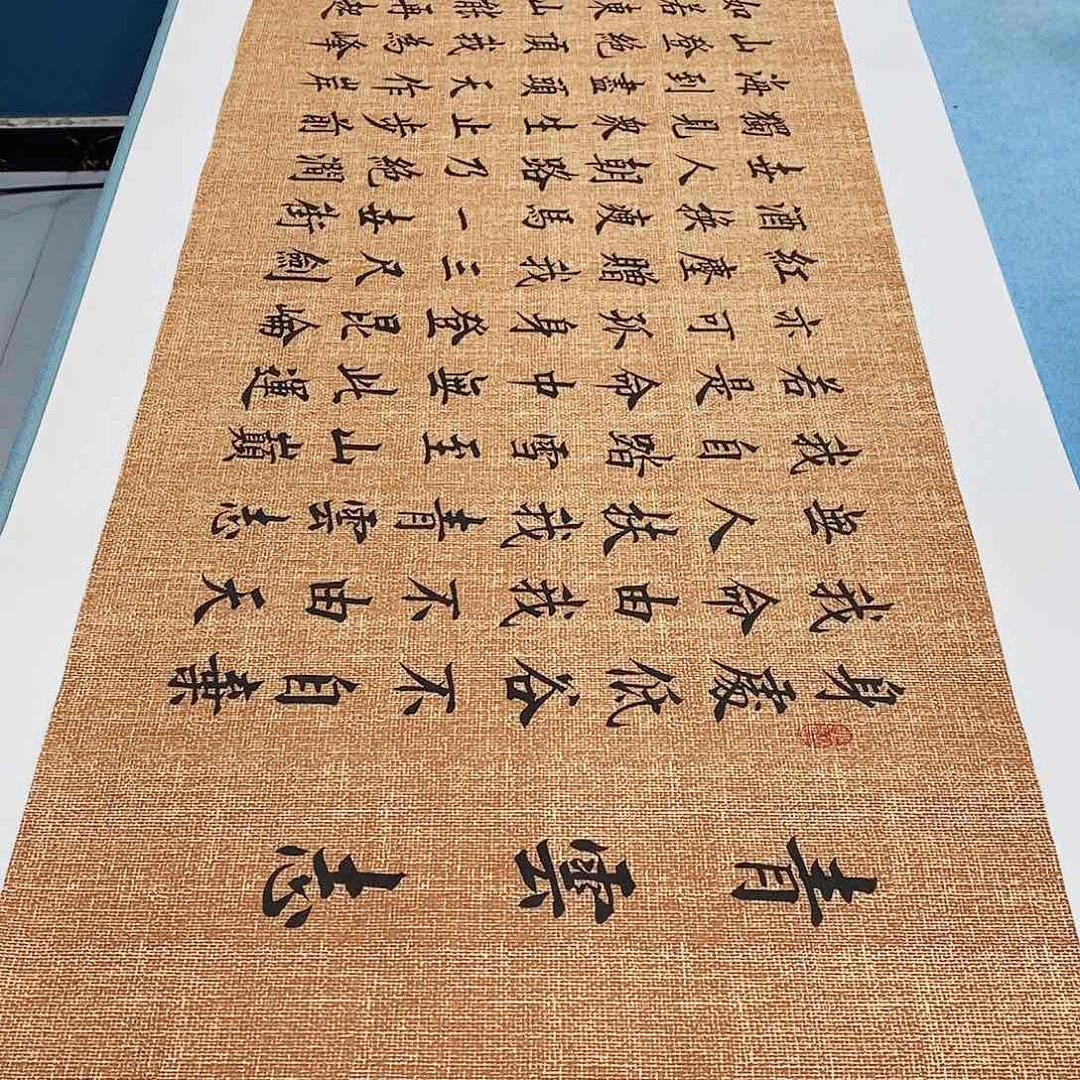 青雲志
身處低谷不自棄
我命由我不由天
無人扶我青雲志
我自踏雪至山巔
若是命中無此運
亦可孤身登昆崘
紅塵贈我三尺劍
酒換瘦馬一世街
世人朝路乃絕澗
獨見衆生止步前
海到盡頭天作岸
山登絕頂我為峰
如若東山能再起